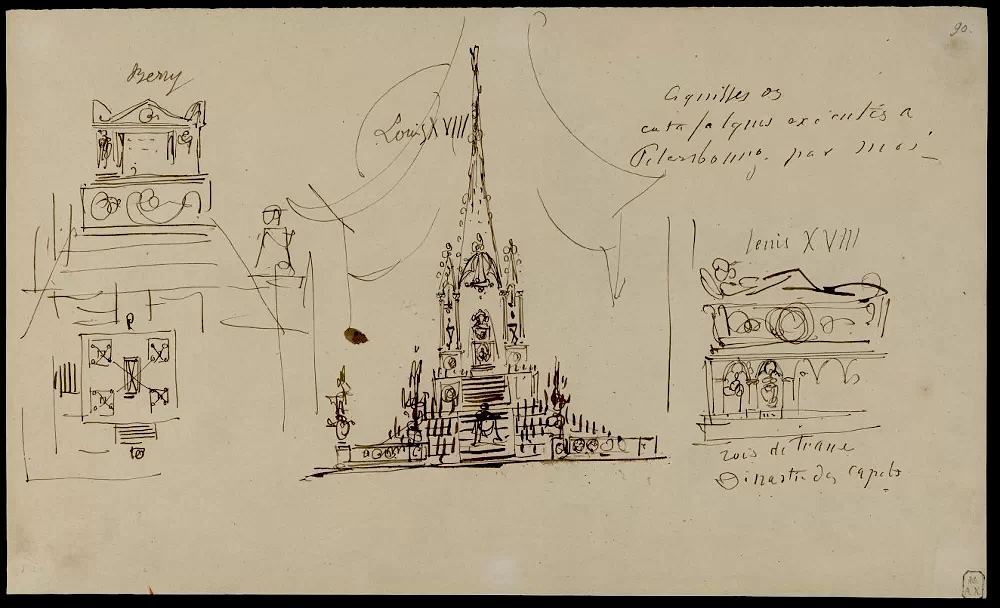 90.
Berry
Louis XVIII
Cquilles os
catafalques exécutés a
Petersbourg. par moi
Louis XVIII
rois de France
Dinastie des capets